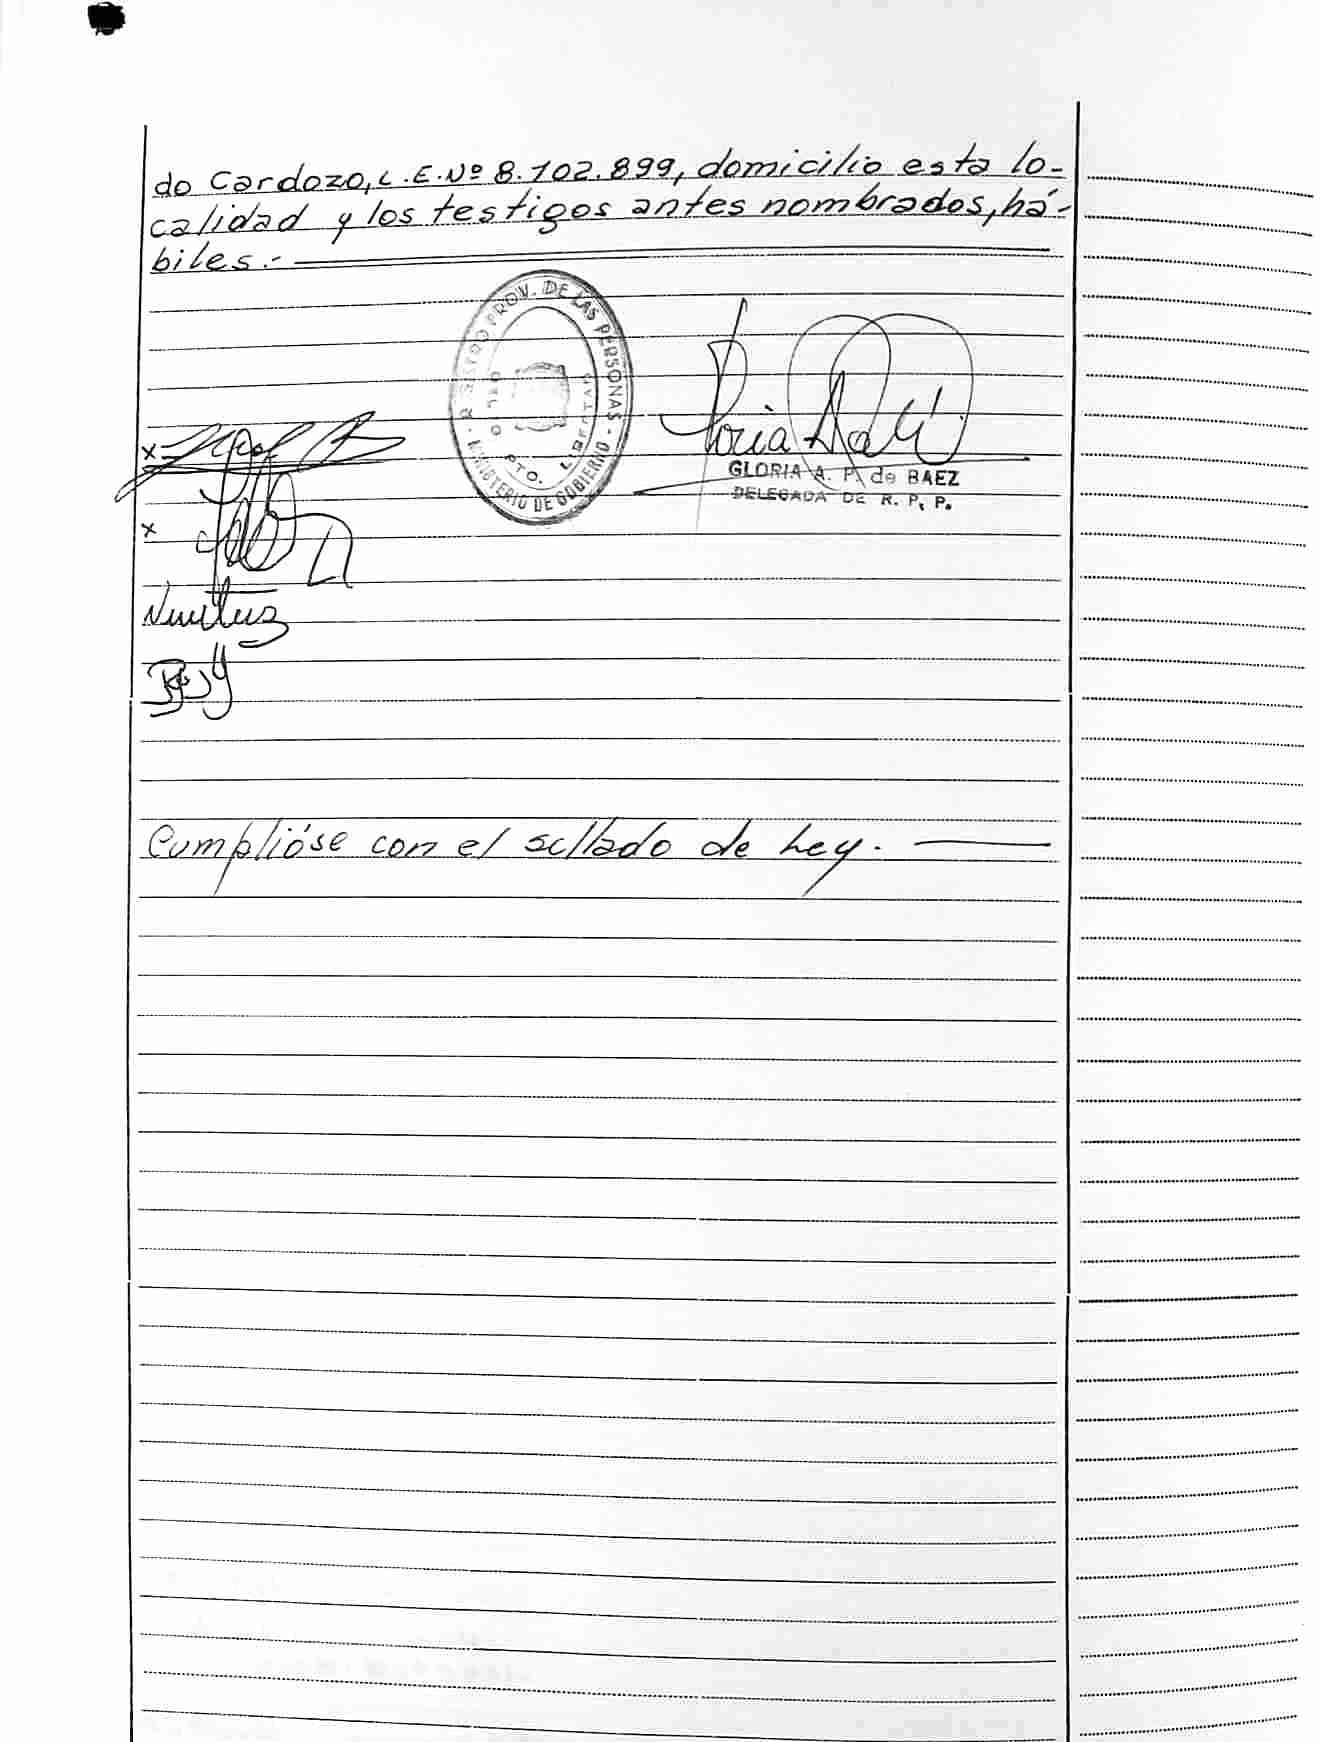 do Cardozo, L.E.Nº 8.102.899, domicilio esta lo-
calidad y los testigos antes nombrados, há-
biles.-
REGISTRO PROV. DE LAS PERSONAS
MINISTERIO DE GOBIERNO
PTO. LIBERTAD
GLORIA A. P. de BAEZ
DELEGADA DE R. P. P.
Cumplióse con el sellado de Ley.